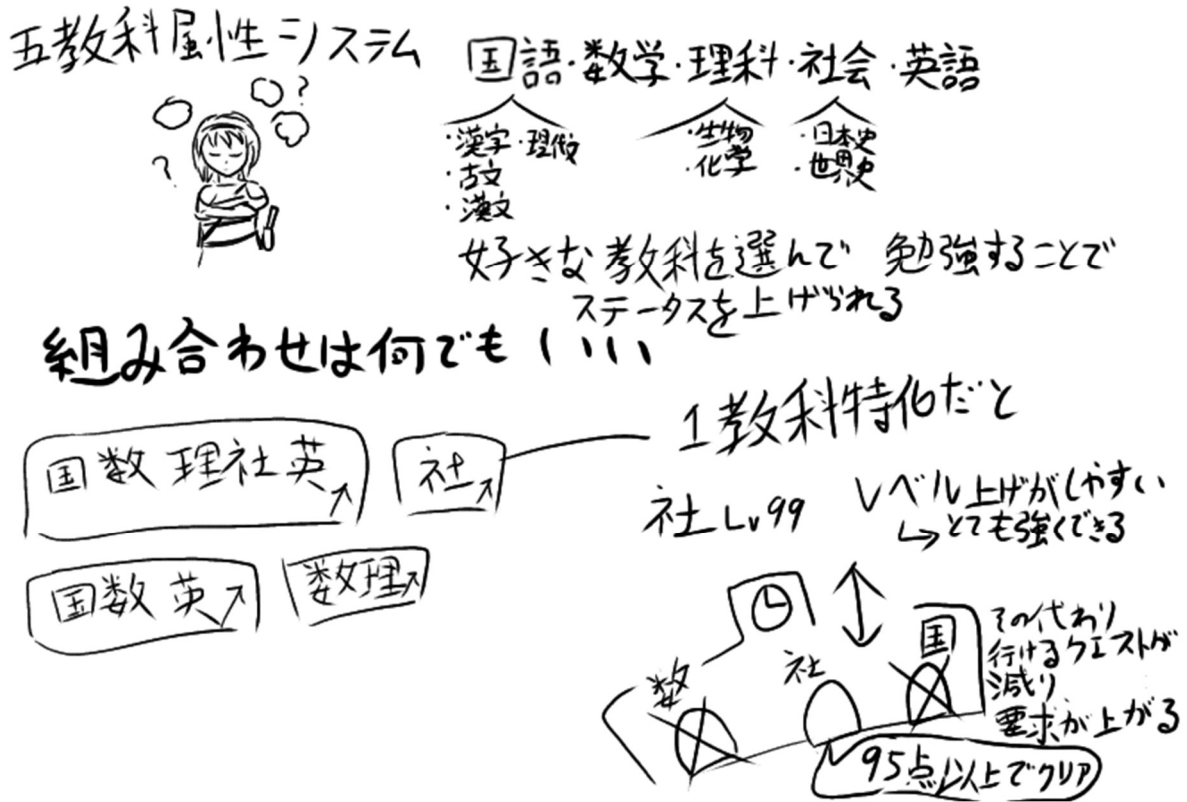 五教科属性システム
?
?
国語・数学・理科・社会・英語
・漢字・現代文
・古文
・漢文
・生物
・化学
・日本史
・世界史
好きな教科を選んで 勉強することで
ステータスを上げられる
組み合わせは何でもいい
国数理社英↗
社↗
国数英↗
数理↗
1教科特化だと
社Lv99
レベル上げがしやすい
↳とても強くできる
数
社
国
その代わり
行けるクエストが
減り
要求が上がる
95点以上でクリア